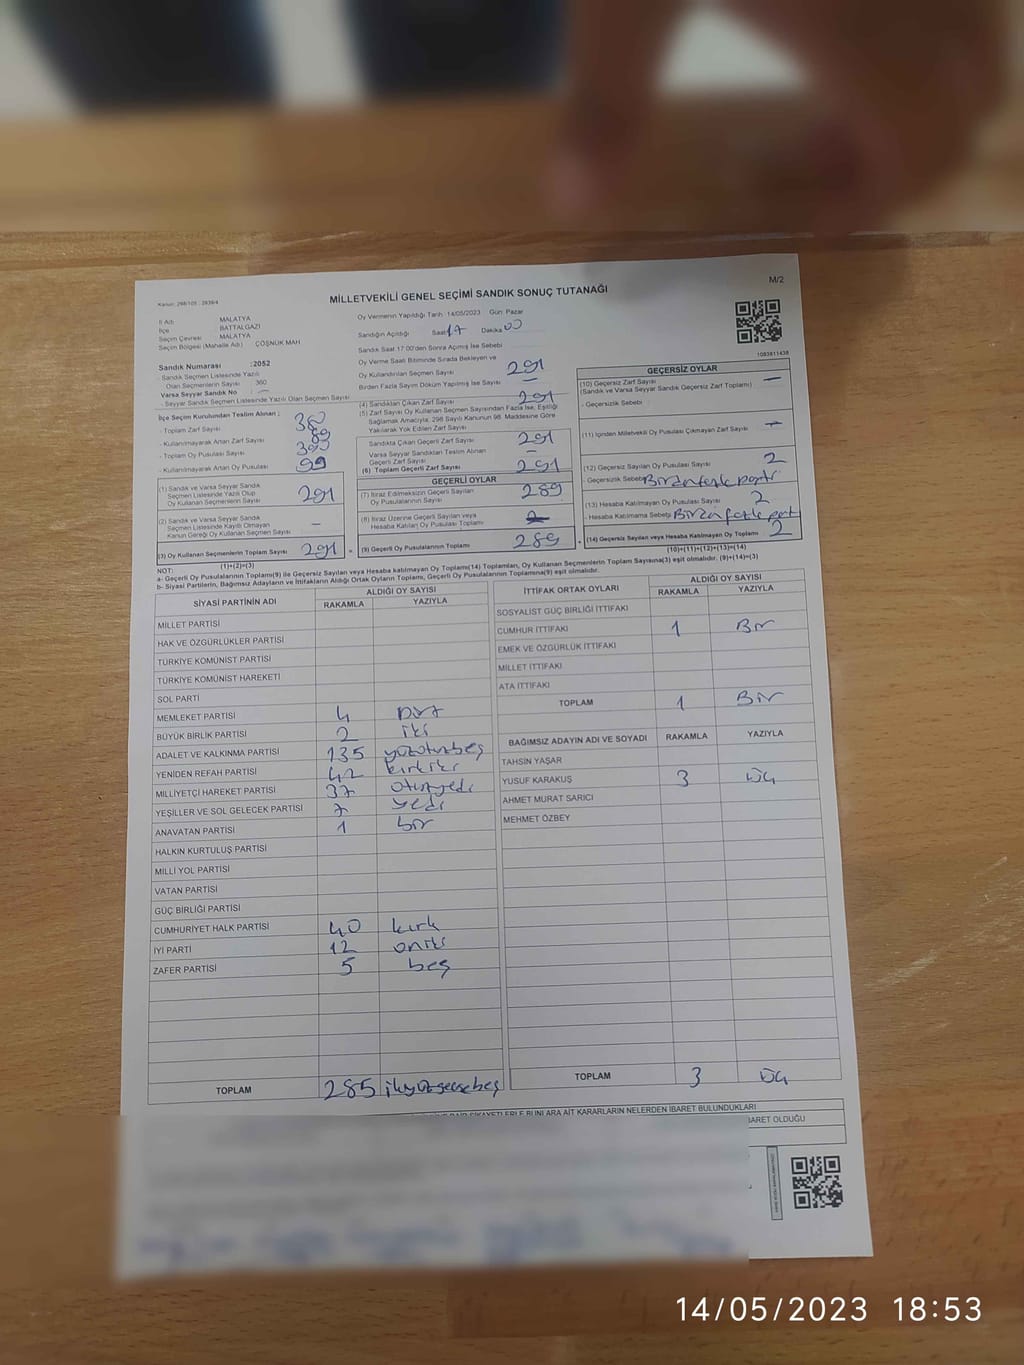 M/2
Kanun: 298/105 ; 2839/4
MİLLETVEKİLİ GENEL SEÇİMİ SANDIK SONUÇ TUTANAĞI
İl Adı MALATYA
İlçe BATTALGAZİ
Seçim Çevresi MALATYA
Seçim Bölgesi (Mahalle Adı) ÇÖŞNÜK MAH
Sandık Numarası :2052
- Sandık Seçmen Listesinde Yazılı
Olan Seçmenlerin Sayısı 360
Varsa Seyyar Sandık No
- Seyyar Sandık Seçmen Listesinde Yazılı Olan Seçmen Sayısı
İlçe Seçim Kurulundan Teslim Alınan ;
- Toplam Zarf Sayısı
- Kullanılmayarak Artan Zarf Sayısı 89
- Toplam Oy Pusulası Sayısı
- Kullanılmayarak Artan Oy Pusulası 99
(1) Sandık ve Varsa Seyyar Sandık
Seçmen Listesinde Yazılı Olup
Oy Kullanan Seçmenlerin Sayısı 291
(2) Sandık ve Varsa Seyyar Sandık
Seçmen Listesinde Kayıtlı Olmayan
Kanun Gereği Oy Kullanan Seçmen Sayısı –
(3) Oy Kullanan Seçmenlerin Toplam Sayısı 291
(1)+(2)=(3)
Oy Vermenin Yapıldığı Tarih 14/05/2023 Gün Pazar
Sandığın Açıldığı Saat 17 Dakika 00
Sandık Saat 17:00'den Sonra Açılmış İse Sebebi
Oy Verme Saati Bitiminde Sırada Bekleyen ve
Oy Kullandırılan Seçmen Sayısı 291
Birden Fazla Sayım Döküm Yapılmış İse Sayısı –
(4) Sandıktan Çıkan Zarf Sayısı 291
(5) Zarf Sayısı Oy Kullanan Seçmen Sayısından Fazla İse, Eşitliği
Sağlamak Amacıyla; 298 Sayılı Kanunun 98. Maddesine Göre
Yakılarak Yok Edilen Zarf Sayısı
Sandıkta Çıkan Geçerli Zarf Sayısı 291
Varsa Seyyar Sandıktan Teslim Alınan
Geçerli Zarf Sayısı –
(6) Toplam Geçerli Zarf Sayısı 291
GEÇERLİ OYLAR
(7) İtiraz Edilmeksizin Geçerli Sayılan
Oy Pusulalarının Sayısı 289
(8) İtiraz Üzerine Geçerli Sayılan veya
Hesaba Katılan Oy Pusulası Toplamı
(9) Geçerli Oy Pusulalarının Toplamı 289
1093811438
GEÇERSİZ OYLAR
(10) Geçersiz Zarf Sayısı –
(Sandık ve Varsa Seyyar Sandık Geçersiz Zarf Toplamı)
- Geçersizlik Sebebi
(11) İçinden Milletvekili Oy Pusulası Çıkmayan Zarf Sayısı –
(12) Geçersiz Sayılan Oy Pusulası Sayısı 2
- Geçersizlik Sebebi
(13) Hesaba Katılmayan Oy Pusulası Sayısı 2
- Hesaba Katılmama Sebebi
(14) Geçersiz Sayılan veya Hesaba Katılmayan Oy Toplamı 2
(10)+(11)+(12)+(13)=(14)
NOT:
a- Geçerli Oy Pusulaları Toplamı(9) ile Geçersiz Sayılan veya Hesaba katılmayan Oy Toplamı(14) Toplamları, Oy Kullanan Seçmenlerin Toplam Sayısına(3) eşit olmalıdır. (9)+(14)=(3)
b- Siyasi Partilerin, Bağımsız Adayların ve İttifakların Aldığı Ortak Oyların Toplamı, Geçerli Oy Pusulalarının Toplamına(9) eşit olmalıdır.
SİYASİ PARTİNİN ADI ALDIĞI OY SAYISI
RAKAMLA YAZIYLA
MİLLET PARTİSİ
HAK VE ÖZGÜRLÜKLER PARTİSİ
TÜRKİYE KOMÜNİST PARTİSİ
TÜRKİYE KOMÜNİST HAREKETİ
SOL PARTİ
MEMLEKET PARTİSİ 4 Dört
BÜYÜK BİRLİK PARTİSİ 2 iki
ADALET VE KALKINMA PARTİSİ 135 yüzotuzbeş
YENİDEN REFAH PARTİSİ 42 kırkiki
MİLLİYETÇİ HAREKET PARTİSİ 37 otuzyedi
YEŞİLLER VE SOL GELECEK PARTİSİ 7 yedi
ANAVATAN PARTİSİ 1 bir
HALKIN KURTULUŞ PARTİSİ
MİLLİ YOL PARTİSİ
VATAN PARTİSİ
GÜÇ BİRLİĞİ PARTİSİ
CUMHURİYET HALK PARTİSİ 40 kırk
İYİ PARTİ 12 oniki
ZAFER PARTİSİ 5 beş
TOPLAM 285 ikiyüzseksenbeş
İTTİFAK ORTAK OYLARI ALDIĞI OY SAYISI
RAKAMLA YAZIYLA
SOSYALİST GÜÇ BİRLİĞİ İTTİFAKI
CUMHUR İTTİFAKI 1 Bir
EMEK VE ÖZGÜRLÜK İTTİFAKI
MİLLET İTTİFAKI
ATA İTTİFAKI
TOPLAM 1 Bir
BAĞIMSIZ ADAYIN ADI VE SOYADI RAKAMLA YAZIYLA
TAHSİN YAŞAR
YUSUF KARAKUŞ 3 üç
AHMET MURAT SARICI
MEHMET ÖZBEY
TOPLAM 3 üç
BUNLARA AİT KARARLARIN NELERDEN İBARET BULUNDUKLARI
BARET OLDUĞU
14/05/2023 18:53